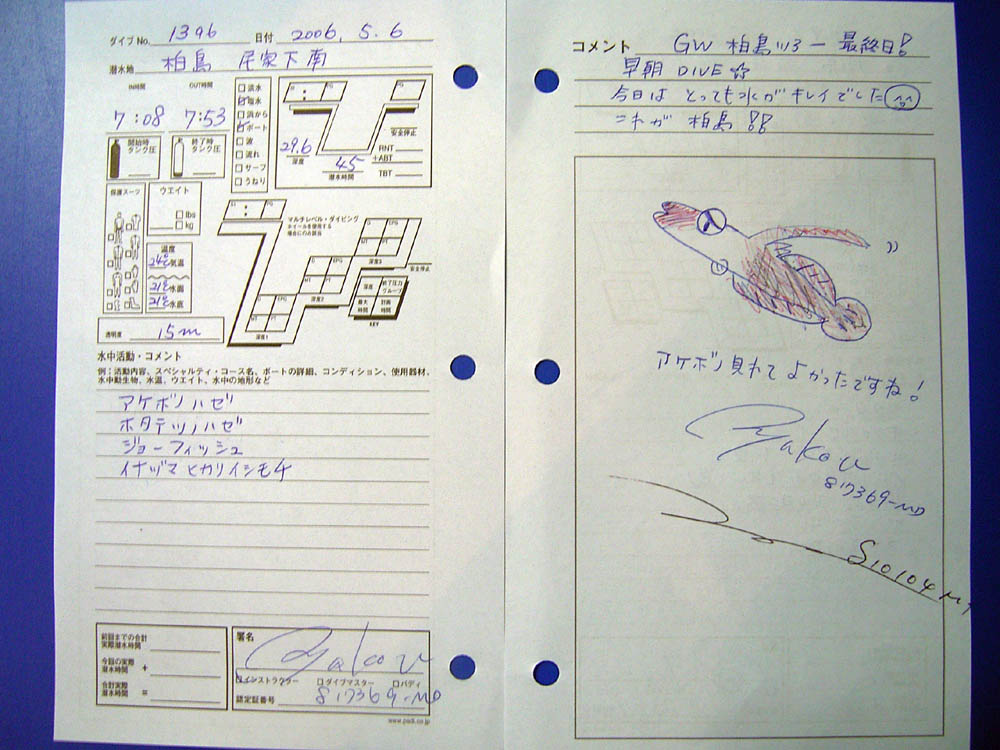 ダイブNo. 1396 日付 2006. 5. 6
潜水地 柏島 民家下南
IN時間 OUT時間
7:08 7:53
開始時タンク圧 終了時タンク圧
淡水
塩水
浜から
ボート
波
流れ
サーフ
うねり
PG
安全停止
29.6
深度
45
潜水時間
RNT
+ABT
TBT
保護スーツ
ウエイト
lbs
kg
温度
24℃ 気温
21℃ 水面
21℃ 水底
透明度 15m
マルチレベル・ダイビング
ホイールを使用する
場合にのみ該当
深度1
深度2
深度3
安全停止
深度 終了圧力グループ
最大時間 計画時間
KEY
水中活動・コメント
例:活動内容、スペシャルティ・コース名、ボートの詳細、コンディション、使用器材、
水中動生物、水温、ウエイト、水中の地形など
アケボノハゼ
ホタテツノハゼ
ジョーフィッシュ
イナヅマヒカリイシモチ
前回までの合計
実際潜水時間
今回の実際
潜水時間 +
合計実際
潜水時間 =
署名 Yakou
インストラクター ダイブマスター バディ
認定証番号 817369-MD
www.padi.co.jp
コメント GW 柏島ツアー 最終日!
早朝 DIVE☆
今日は とっても水が キレイでした
これが 柏島!!
アケボノ見れて よかったですね!
Yakou
817369-MD
S10104